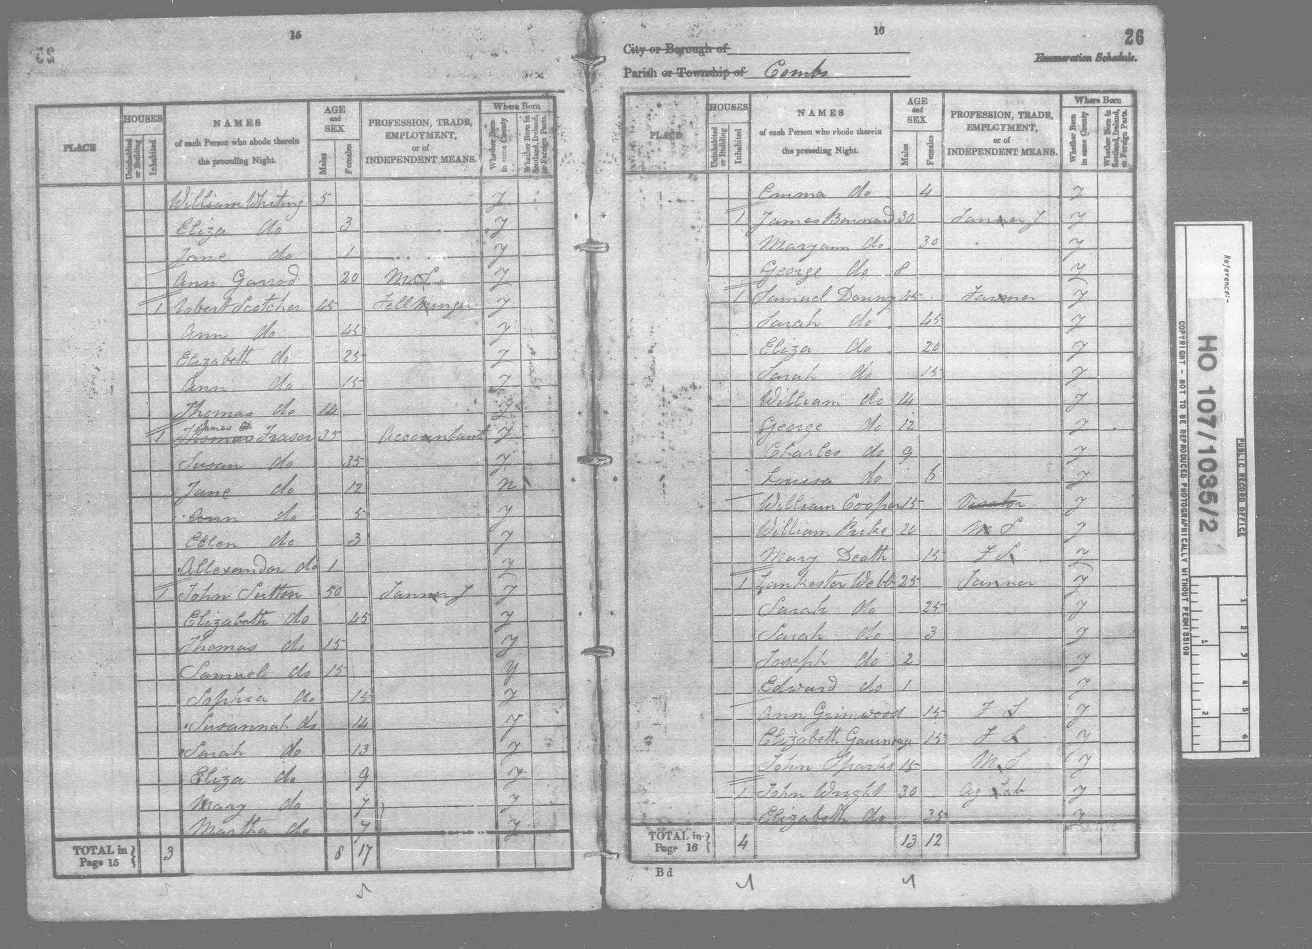 15
PLACE HOUSES NAMES AGE and SEX PROFESSION, TRADE, EMPLOYMENT, or of INDEPENDENT MEANS. Where Born
Uninhabited or Building Inhabited of each Person who abode therein the preceding Night. Males Females Whether Born in same County Whether Born in Scotland, Ireland, or Foreign Parts.
William Whiting 5 y
Eliza do 3 y
Jane do 1 y
Ann Garrod 20 y
1 Robert Scotcher 45 Fellmonger y
Ann do 45 y
Elizabeth do 25 y
Ann do 15 y
Thomas do 14 y
1 Thomas James Fraser 35 Accountant y
Susan do 35 y
Jane do 12 n
Ann do 5 y
Ellen do 3 y
Allexander do 1 y
1 John Sutton 50 Tanner J y
Elizabeth do 45 y
Thomas do 15 y
Samuel do 15 y
Sophia do 15 y
Susannah do 14 y
Sarah do 13 y
Eliza do 9 y
Mary do 7 y
Martha do 7 y
TOTAL in Page 15 3 8 17
16
26
City or Borough of
Enumeration Schedule.
Parish or Township of Combs
PLACE HOUSES NAMES AGE and SEX PROFESSION, TRADE, EMPLOYMENT, or of INDEPENDENT MEANS. Where Born
Uninhabited or Building Inhabited of each Person who abode therein the preceding Night. Males Females Whether Born in same County Whether Born in Scotland, Ireland, or Foreign Parts.
Emma do 4 y
1 James Barnard 30 Tanner J y
Maryann do 30 y
George do 8 y
1 Samuel Denny 45 Farmer y
Sarah do 45 y
Eliza do 20 y
Sarah do 15 y
William do 14 y
George do 12 y
Charles do 9 y
Louisa do 6 y
William Cooper 15 y
William 20 M S y
Mary Death 15 F S y
1 Lankester Webb 25 Tanner y
Sarah do 25 y
Sarah do 3 y
Joseph do 2 y
Edward do 1 y
Ann Grimwood 15 F S y
Elizabeth 15 F S y
John Sparks 15 M S y
1 John Wright 30 Ag Lab y
Elizabeth do 35 y
TOTAL in Page 16 4 13 12
Bd
Reference:-
HO 107/1035/2
PUBLIC RECORD OFFICE
COPYRIGHT - NOT TO BE REPRODUCED PHOTOGRAPHICALLY WITHOUT PERMISSION